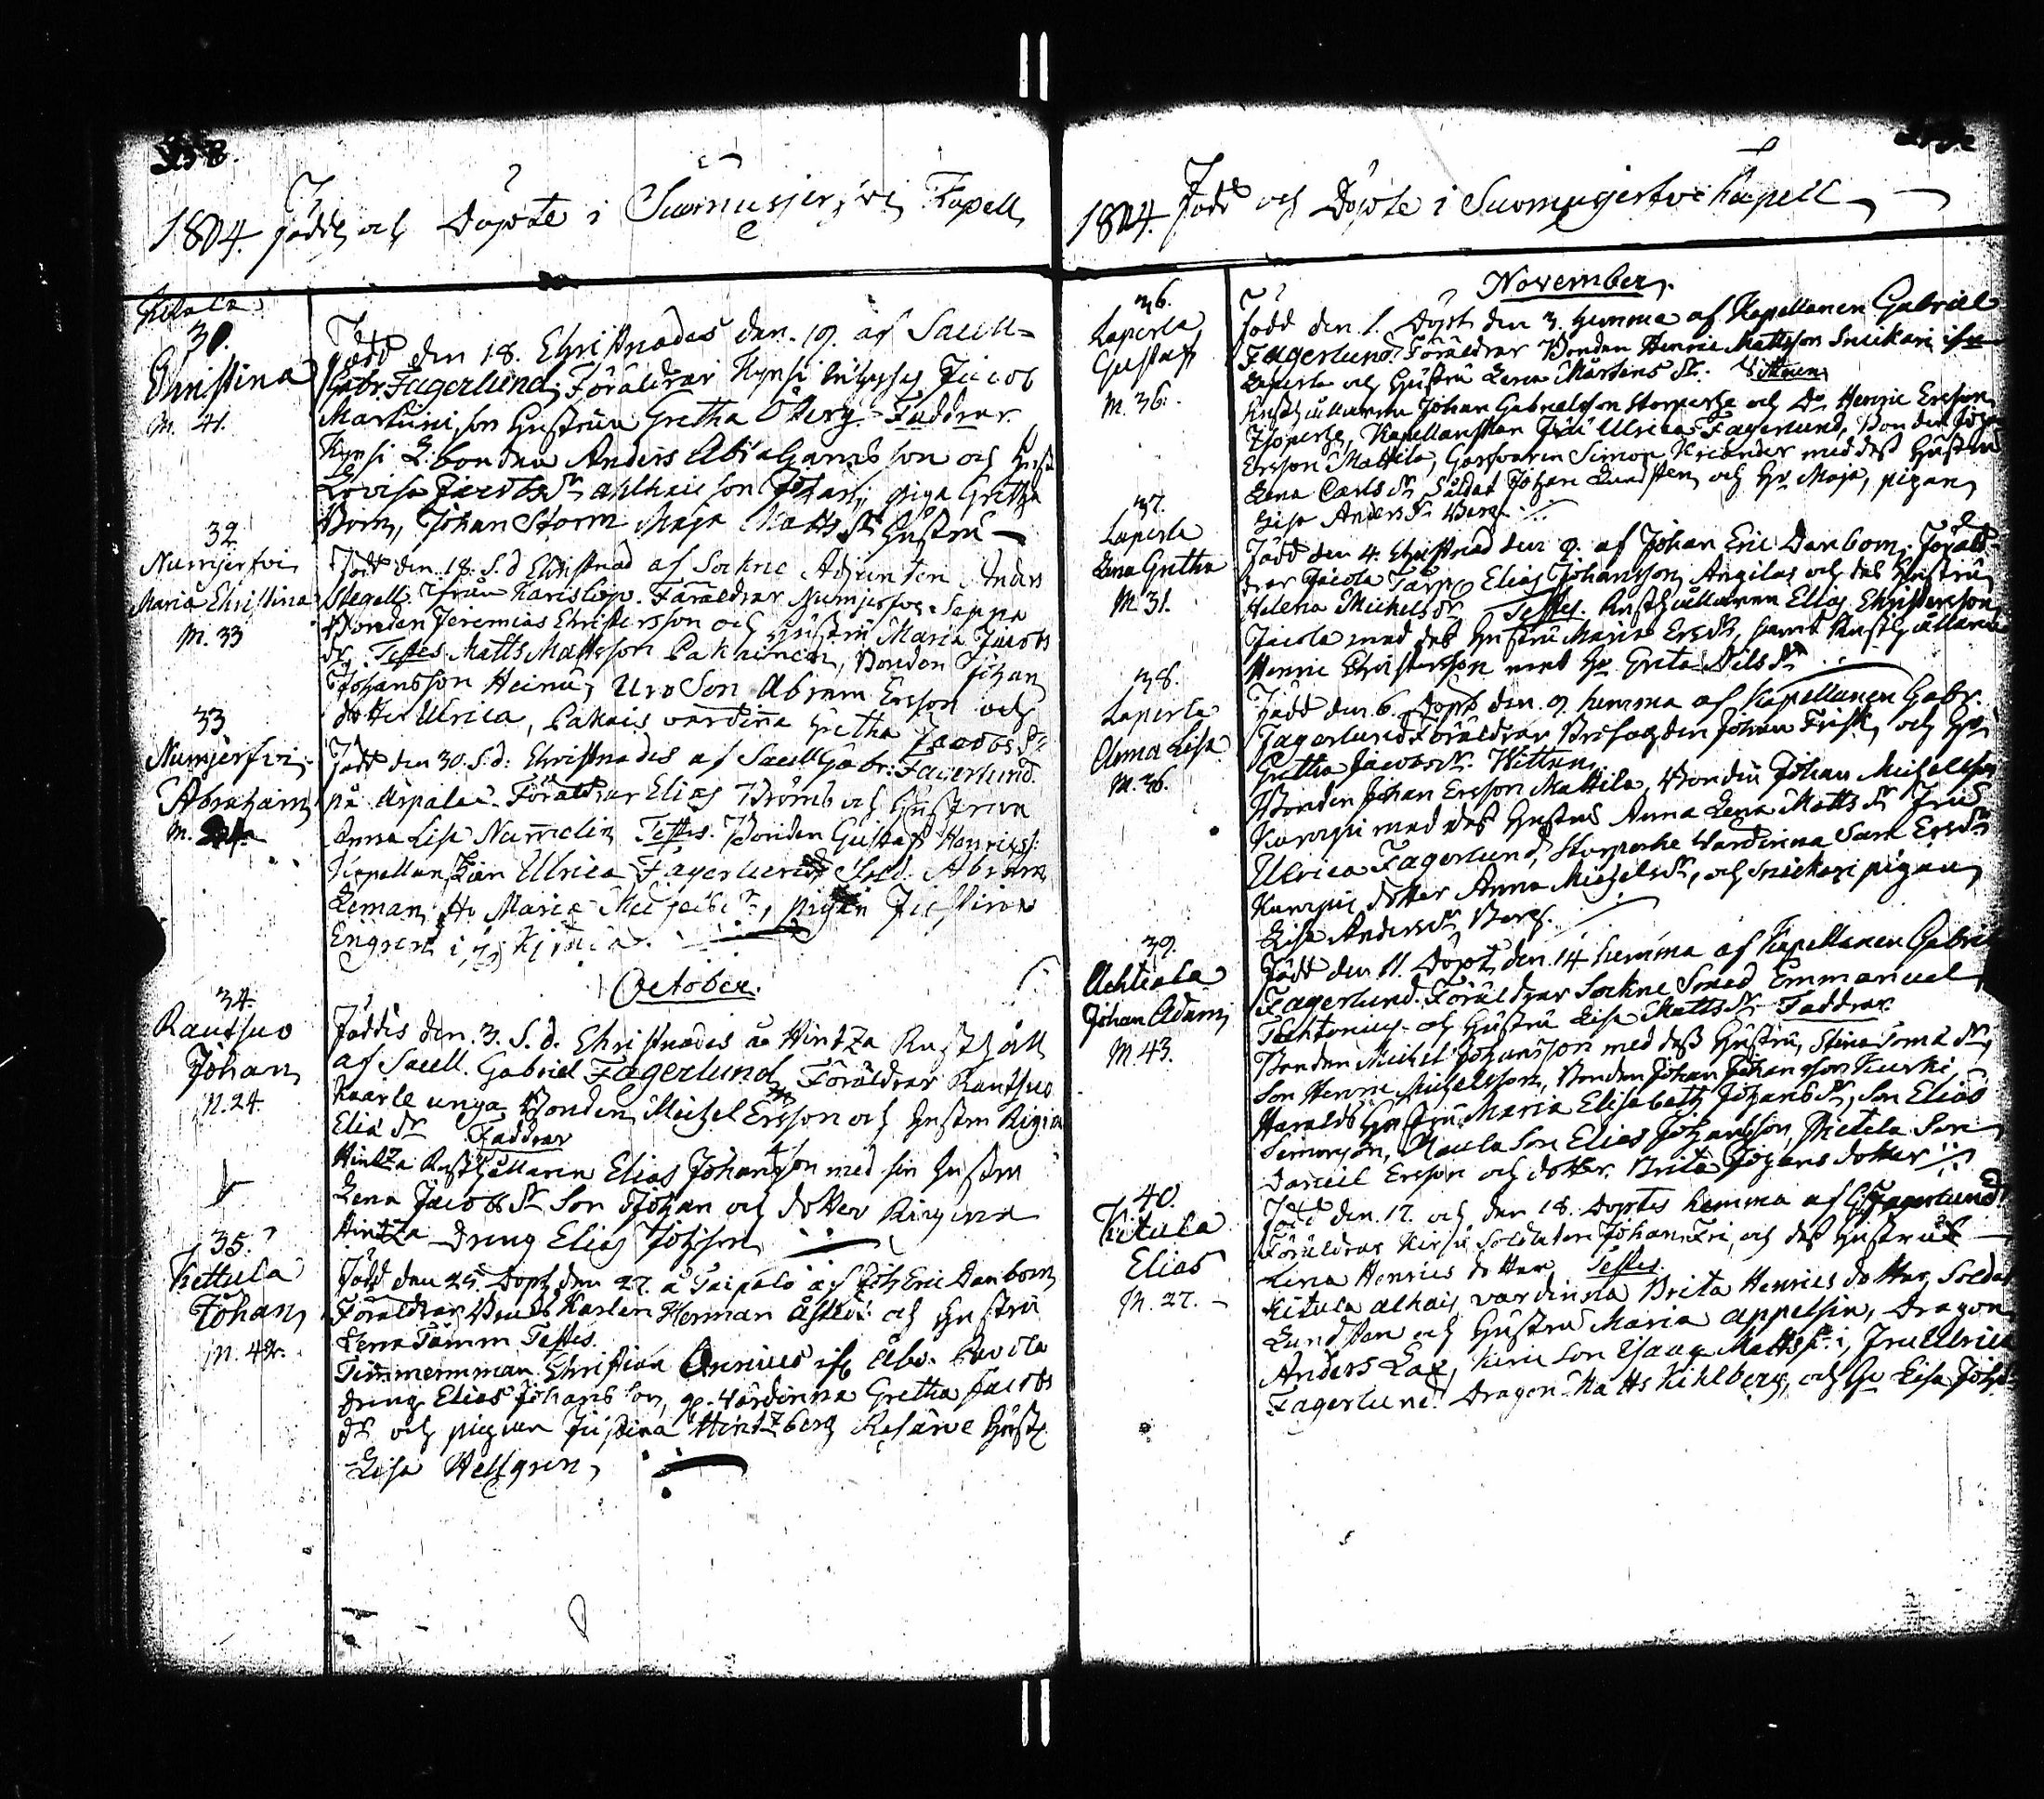 1804. Född och Döpte i Suomusjerfvi Kapell
Kitula
31.
Christina
M. 41.
Född den 18. Christnades den. 19. af Sacell-
Gabr. Fagerlund, Föräldrar Kynsi Jacob
Martinisson Hustrun Gretha Öberg. Faddrar.
Kynsi L. bonden Anders Abrahamsson och Hust
Lovisa Jacobs dr son Johan, piga Gretha
Johan Storm Maja Matts dr Hustru
32
Numjerfvi
Maria Christina
M. 33
Född den 18. S. d Christnad af Sockne Adjuncten
från Karislojo. Föräldrar Numjerfvi Seppä
Bonden Jeremias Christersson och Hustru Maria Jacobs
dr. Testes Matts Mattsson Pakainen, Bonden Johan
Johansson Heinu, Uro Son Abram Ersson och
dotter Ulrica, Pakais vardinna Gretha Jacobs dr
33
Numjerfvi
Abraham
M.
Född den 30. S. d: Christnades af Sacell Gabr: Fagerlund.
på Arpala. Föräldrar Elias Ström och Hustrun
Anna Lisa Numelin Testes. Bonden Gustaf Henrics:
Kapellanskan Ulrica Fagerlund Sold. Abram
Leman, Hu Maria pigan Justina
Engren i
October.
34.
Rautsuo
Johan
M. 24.
Föddes den. 3. S. d. Christnades å Hintza Rusthåll
af Sacell. Gabriel Fagerlund, Föräldrar Rautsuo
Kaarle unga Bonden Michel Ersson och Hustru Rigina
Elia dr Faddrar
Hintza Rusthållaren Elias Johansson med sin Hustru
Lena Jacobs dr Son Johan och dotter Ringina
Hintza dreng Elias Johsson
35.
Kettula
Johan
M. 42.
Född den 25. Döpt den 27. å Taipalo af Joh Eric Danbom
Föräldrar Karlen Herman och Hustru
Lena Tamm Testes.
Timmermman Christian Annius ifr Åbo. Pavola
dreng Elias Johansson, vardinna Gretha Jacobs
dr och pigan Justina Hintzberg Reserve Hustr
Lisa Hellgren
1804. Född och Döpte i Suomusjerfvi Kapell
November.
36.
Laperla
Gustaf
M. 36.
Född den 1. Döpt den 3. hemma af Kapellanen Gabriel
Fagerlund. Föräldrar Bonden Henric Mattsson Snickari ifrå
Laperla och Hustru Lena Mårtens dr. Vittnen
Rusthållaren Johan Gabrielsson Storperhe och Do Henric Ersson
Isoperhe, Kapellanskan Fru Ulrica Fagerlund, Bonden Johan
Ersson Mattila, Garfvaren Simon Kreander med dess Hustru
Lena Carls dr Soldat Johan Lundsten och Hu Maja, pigan
Lisa Anders dr Berg.
37.
Laperla
Lena Gretha
M. 31.
Född den 4. Christnad den 9. af Johan Eric Danbom. Föräld-
rar Jacola Torp Elias Johansson Angilas och des Hustru
Helena Michels dr. Testes. Rusthållaren Elias Christersson
Jacola med des Hustru Maria Ers dr, samt Rusthållaren
Henric Christersson med Hu Greta Nils dr
38.
Laperla
Anna Lisa
M. 36.
Född den 6. Döpt den 9. hemma af Kapellanen Gabr.
Fagerlund Föräldrar Johan Frisk, och Hu
Gretha Jacobs dr. Vittnen
Bonden Johan Ersson Mattila, Bonden Johan Michelsson
Kurppi med dess Hustru Anna Lena Matts dr Fru
Ulrica Fagerlund, Storperhe Vardinna Sara Ers dr
Kurppi dotter Anna Michels dr, och Snickari pigan
Lisa Anders dr Berg.
39.
Achtiala
Johan Adam
M. 43.
Född den 11. Döpt den 14 hemma af Kapellanen Gabriel
Fagerlund. Föräldrar Sockne Smed Emmanuel
Tecktonius och Hustru Lisa Matts dr Faddrar
Bonden Michel Johansson med dess Hustru, Stina Toma dr,
Son Henric Michelsson, Bonden Johan Johansson Kurki,
Haralds Hustru Maria Elisabeth Johans dr, Son Elias
Simonson, Naula Son Elias Johansson, Pietila Son
Daniel Ersson och dotter Brita Johans dotter
40.
Kitula
Elias
M. 27.
Född den 17. och den 18. Döptes hemma af G: Fagerlund.
Föräldrar Kirju Soldaten Johan Fri, och dess Hustru
Lena Henrics dotter Testes.
Kitula alhais vardinna Brita Henrics dotter, Soldat
Lundsten och Hustru Maria Appelsin, Dragon
Anders Lax, Son Isaac Mattss: Fru Ulrica
Fagerlund. Dragon Matts Kihlberg, och Hu Lisa Johs